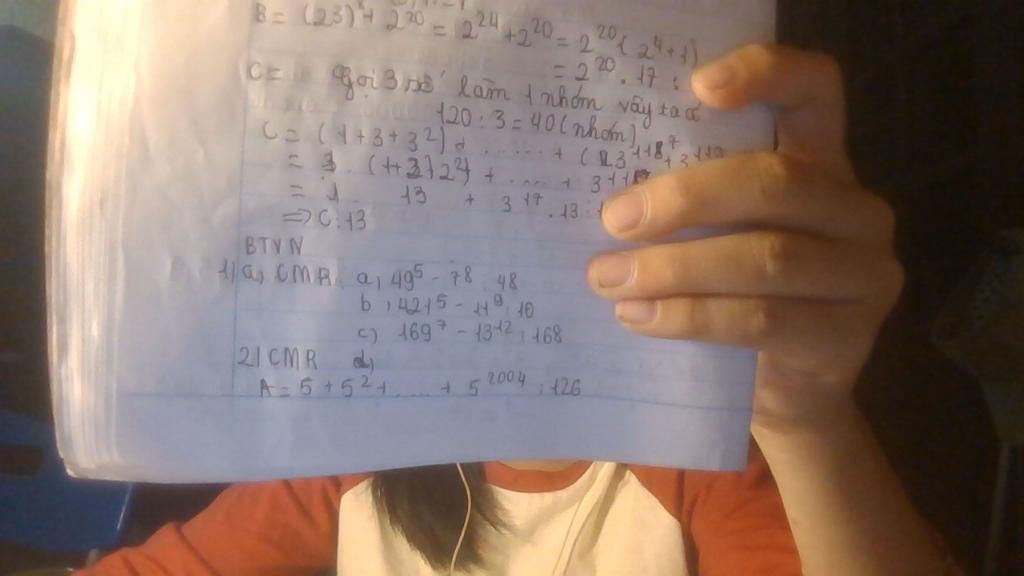 B = (23)⁸ + 2²⁰ = 2²⁴ + 2²⁰ = 2²⁰ ( 2⁴ + 1 )
= 2²⁰ . 17 :
C = Gọi 3 số làm 1 nhóm vậy ta có
120 : 3 = 40 (nhóm)
C = ( 1 + 3 + 3² ) + ...... + (
= (1+3+ + .... +
= 1 . 13 + 3¹⁷ . 13 :
=> C : 13
BTVN
1) a, CMR a, 49⁵ - 7⁸ : 48
b, 421⁵ - 11⁹ : 10
c) 169⁷ - 13¹² : 168
2) CMR
A = 5 + 5² + .... + 5²⁰⁰⁴ : 126